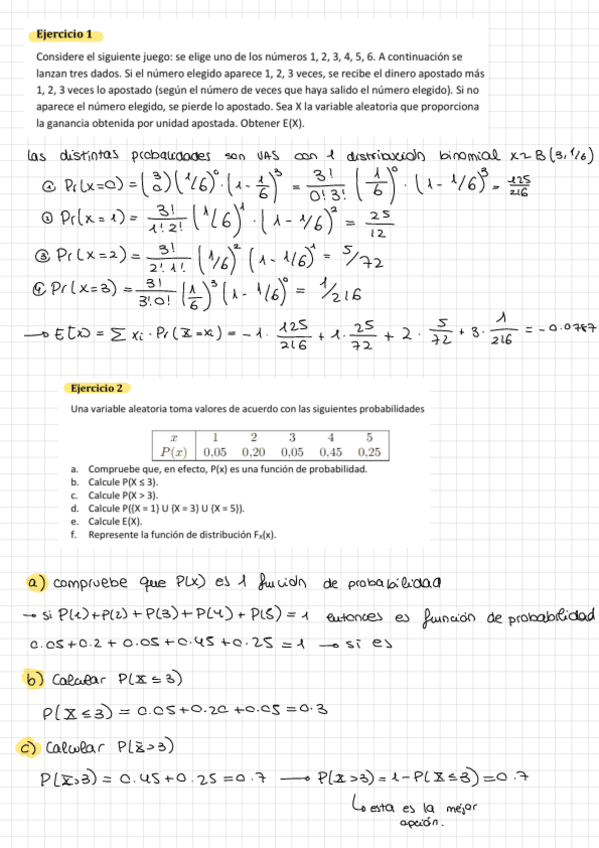 Ejercicio 1
Considere el siguiente juego: se elige uno de los números 1, 2, 3, 4, 5, 6. A continuación se
lanzan tres dados. Si el número elegido aparece 1, 2, 3 veces, se recibe el dinero apostado más
1, 2, 3 veces lo apostado (según el número de veces que haya salido el número elegido). Si no
aparece el número elegido, se pierde lo apostado. Sea X la variable aleatoria que proporciona
la ganancia obtenida por unidad apostada. Obtener E(X).
las distintas probabilidades son VAS con 1 distribución binomial X~B(3, 1/6)
① Pr(x=0) = (3 0) (1/6)^0 · (1 - 1/6)^3 = 3!/0!3! (1/6)^0 · (1 - 1/6)^3 = 125/216
② Pr(x=1) = 3!/1!2! (1/6)^1 · (1 - 1/6)^2 = 25/12
③ Pr(x=2) = 3!/2!1! (1/6)^2 (1 - 1/6)^1 = 5/72
④ Pr(x=3) = 3!/3!0! (1/6)^3 (1 - 1/6)^0 = 1/216
→ E[x] = Σ xi · Pr(X=xi) = -1 · 125/216 + 1 · 25/72 + 2 · 5/72 + 3 · 1/216 = -0.0787
Ejercicio 2
Una variable aleatoria toma valores de acuerdo con las siguientes probabilidades
x 1 2 3 4 5
P(x) 0,05 0,20 0,05 0,45 0,25
a. Compruebe que, en efecto, P(x) es una función de probabilidad.
b. Calcule P(X ≤ 3).
c. Calcule P(X > 3).
d. Calcule P({X = 1} U {X = 3} U {X = 5}).
e. Calcule E(X).
f. Represente la función de distribución Fₓ(x).
a) compruebe que P(x) es 1 función de probabilidad
→ si P(1)+P(2)+P(3)+P(4)+P(5)=1 entonces es función de probabilidad
0.05+0.2+0.05+0.45+0.25=1 → si es
b) Calcular P(X≤3)
P(X≤3) = 0.05+0.20+0.05=0.3
c) Calcular P(X>3)
P(X>3) = 0.45+0.25=0.7 → P(X>3)=1-P(X≤3)=0.7
↳ esta es la mejor
opción.